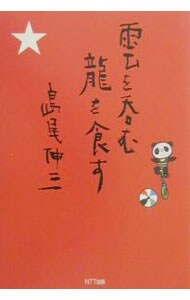 雲を呑む
龍を食す
島尾伸三
NTT出版